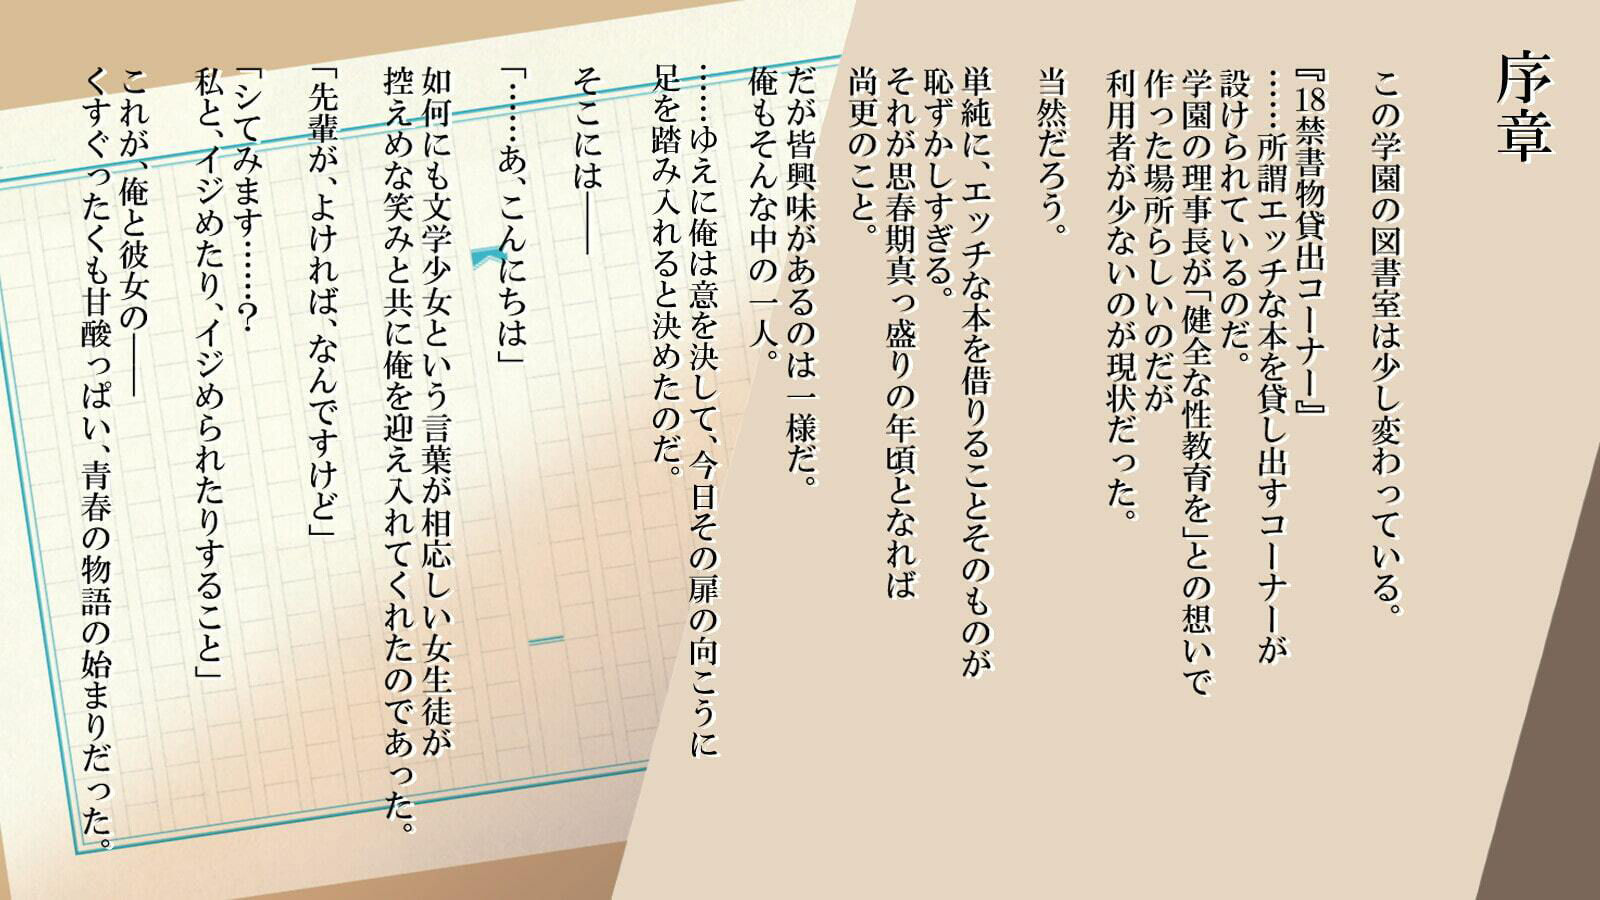 序章
この学園の図書室は少し変わっている。
『18禁書物貸出コーナー』
……所謂エッチな本を貸し出すコーナーが
設けられているのだ。
学園の理事長が「健全な性教育を」との想いで
作った場所らしいのだが
利用者が少ないのが現状だった。
当然だろう。
単純に、エッチな本を借りることそのものが
恥ずかしすぎる。
それが思春期真っ盛りの年頃となれば
尚更のこと。
だが皆興味があるのは一様だ。
俺もそんな中の一人。
……ゆえに俺は意を決して、今日その扉の向こうに
足を踏み入れると決めたのだ。
そこには――
「……あ、こんにちは」
如何にも文学少女という言葉が相応しい女生徒が
控えめな笑みと共に俺を迎え入れてくれたのであった。
「先輩が、よければ、なんですけど」
「シてみます……？
私と、イジめたり、イジめられたりすること」
これが、俺と彼女の――
くすぐったくも甘酸っぱい、青春の物語の始まりだった。